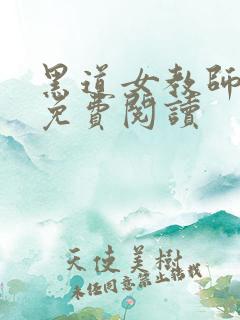 黑道女教師
免費閱讀
天使美樹
未經同意禁止轉載